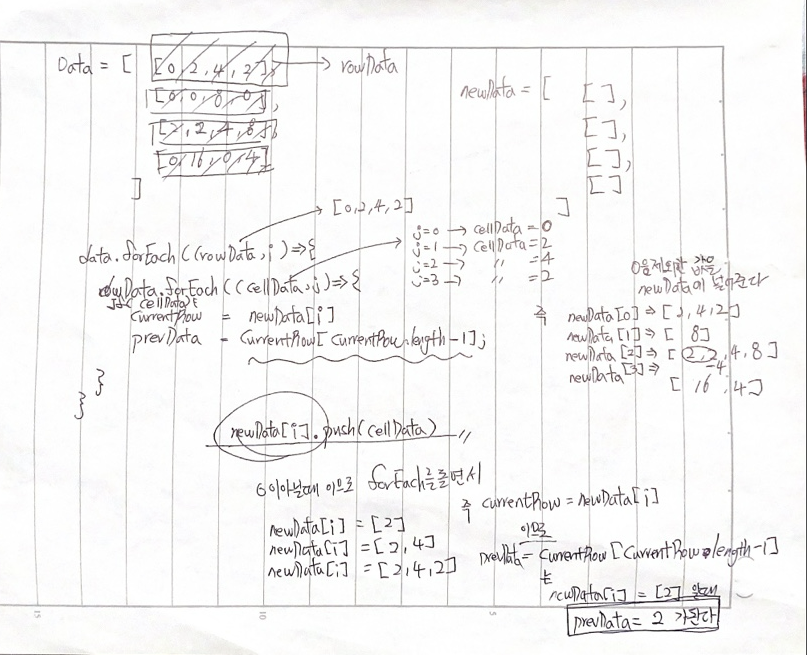 Data = [ [0,2,4,2], → rowData
[0,0,8,0],
[2,2,4,8],
[0,16,0,4]
]
newData = [ [],
[],
[],
[]
]
[0,2,4,2]
data.forEach((rowData,i)=>{
rowData.forEach((cellData,j)=>{
if(cellData){
currentRow = newData[i]
prevData = currentRow[currentRow.length-1];
}
}
j=0 → cellData = 0
j=1 → cellData = 2
j=2 → 〃 = 4
j=3 → 〃 = 2
0을 제외한 값을
newData에 넣어준다
즉 newData[0] ⇒ [2,4,2]
newData[1] ⇒ [8]
newData[2] ⇒ [2,2,4,8]
4
newData[3] ⇒
[16,4]
newData[i].push(cellData) 〃
0이아닐때 이므로 forEach를 돌면서
newData[i] = [2]
newData[i] = [2,4]
newData[i] = [2,4,2]
즉 currentRow = newData[i]
이므로
prevData = currentRow[currentRow.length-1]
는
newData[i] = [2] 일때
prevData = 2 가된다
15
10
5